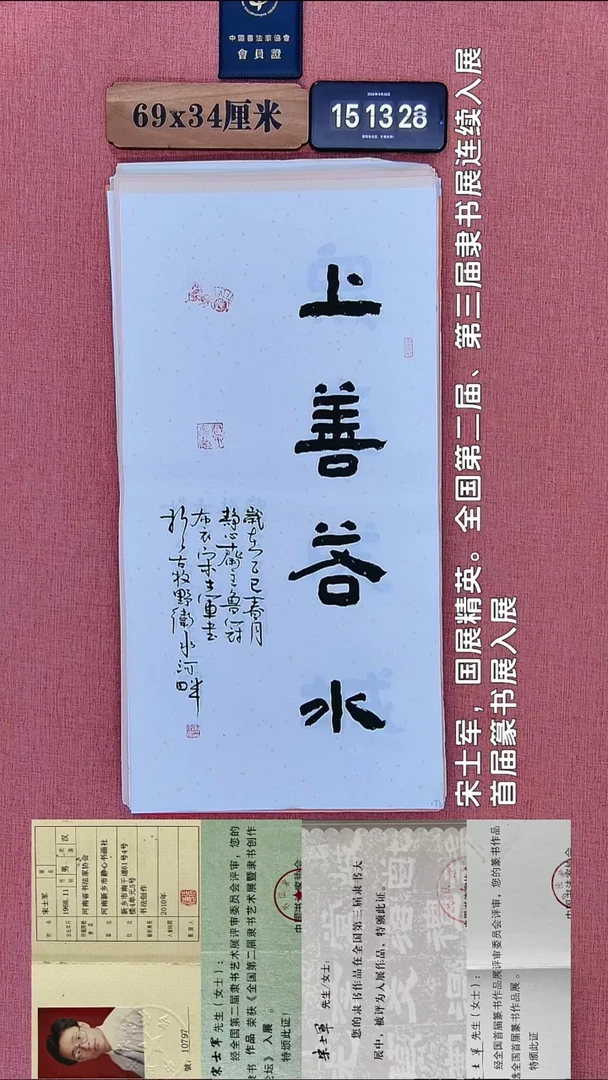 中國書法家協會
會員證
69x34厘米
15 13 28
上善若水
歲在乙巳春月
静心齋主魯冠
布衣宋士軍書
於古牧野衛水河畔
宋士军，国展精英。全国第二届、第三届隶书展连续入展
首届篆书展入展
宋士军
1968.11 男 汉
河南省书法家协会
河南新乡市静心书画社
新乡市南干道61号4号
楼4单元5号
书法创作
2010年
號：10797
宋士军 先生（女士）：
经全国第二届隶书艺术展评审委员会评审，您的
隶书 作品 荣获《全国第二届隶书艺术展暨隶书创作
论坛》入展。
特颁此证！
宋士军 先生/女士：
您的隶书作品在全国第三届隶书大
展中，被评为入展作品，特颁此证。
士军 先生（女士）：
经全国首届篆书作品展评审委员会评审，您的篆书作品
选全国首届篆书作品展。
特颁此证